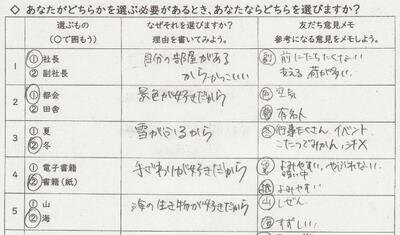 ◇ あなたがどちらかを選ぶ必要があるとき、あなたならどちらを選びますか?
選ぶもの
(○で囲もう)
なぜそれを選びますか?
理由を書いてみよう。
友だち意見メモ
参考になる意見をメモしよう。
1
①社長
②副社長
自分の部屋がある
からかっこいい
副 前にたちたくない
支える 荷が多い
2
①都会
②田舎
景色が好きだから
空気
有名人
3
①夏
②冬
雪が
るから
冬 行事たくさん、イベント
こたつでみかん、汗×
4
①電子書籍
②書籍(紙)
手ざわりが好きだから
よみやすい、やぶれない
紙 よみやすい
5
①山
②海
海の生き物が好きだから
山 しぜん
海 すずしい